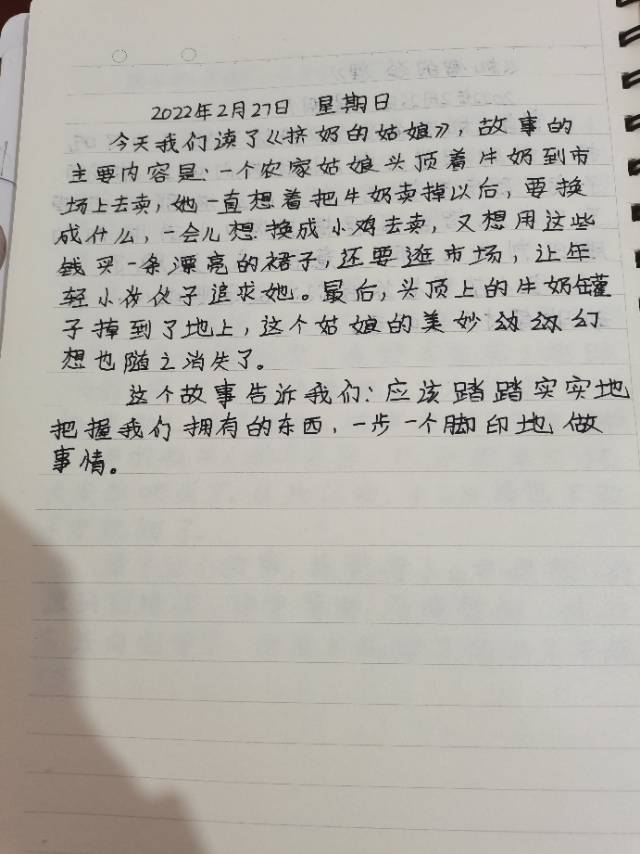 2022年2月27日 星期日
今天我们读了《挤奶的姑娘》，故事的
主要内容是：一个农家姑娘头顶着牛奶到市
场上去卖，她一直想着把牛奶卖掉以后，要换
成什么，一会儿想换成小鸡去卖，又想用这些
钱买一条漂亮的裙子，还要逛市场，让年
轻小伙子追求她。最后，头顶上的牛奶罐
子掉到了地上，这个姑娘的美妙幻
想也随之消失了。
这个故事告诉我们：应该踏踏实实地
把握我们拥有的东西，一步一个脚印地做
事情。